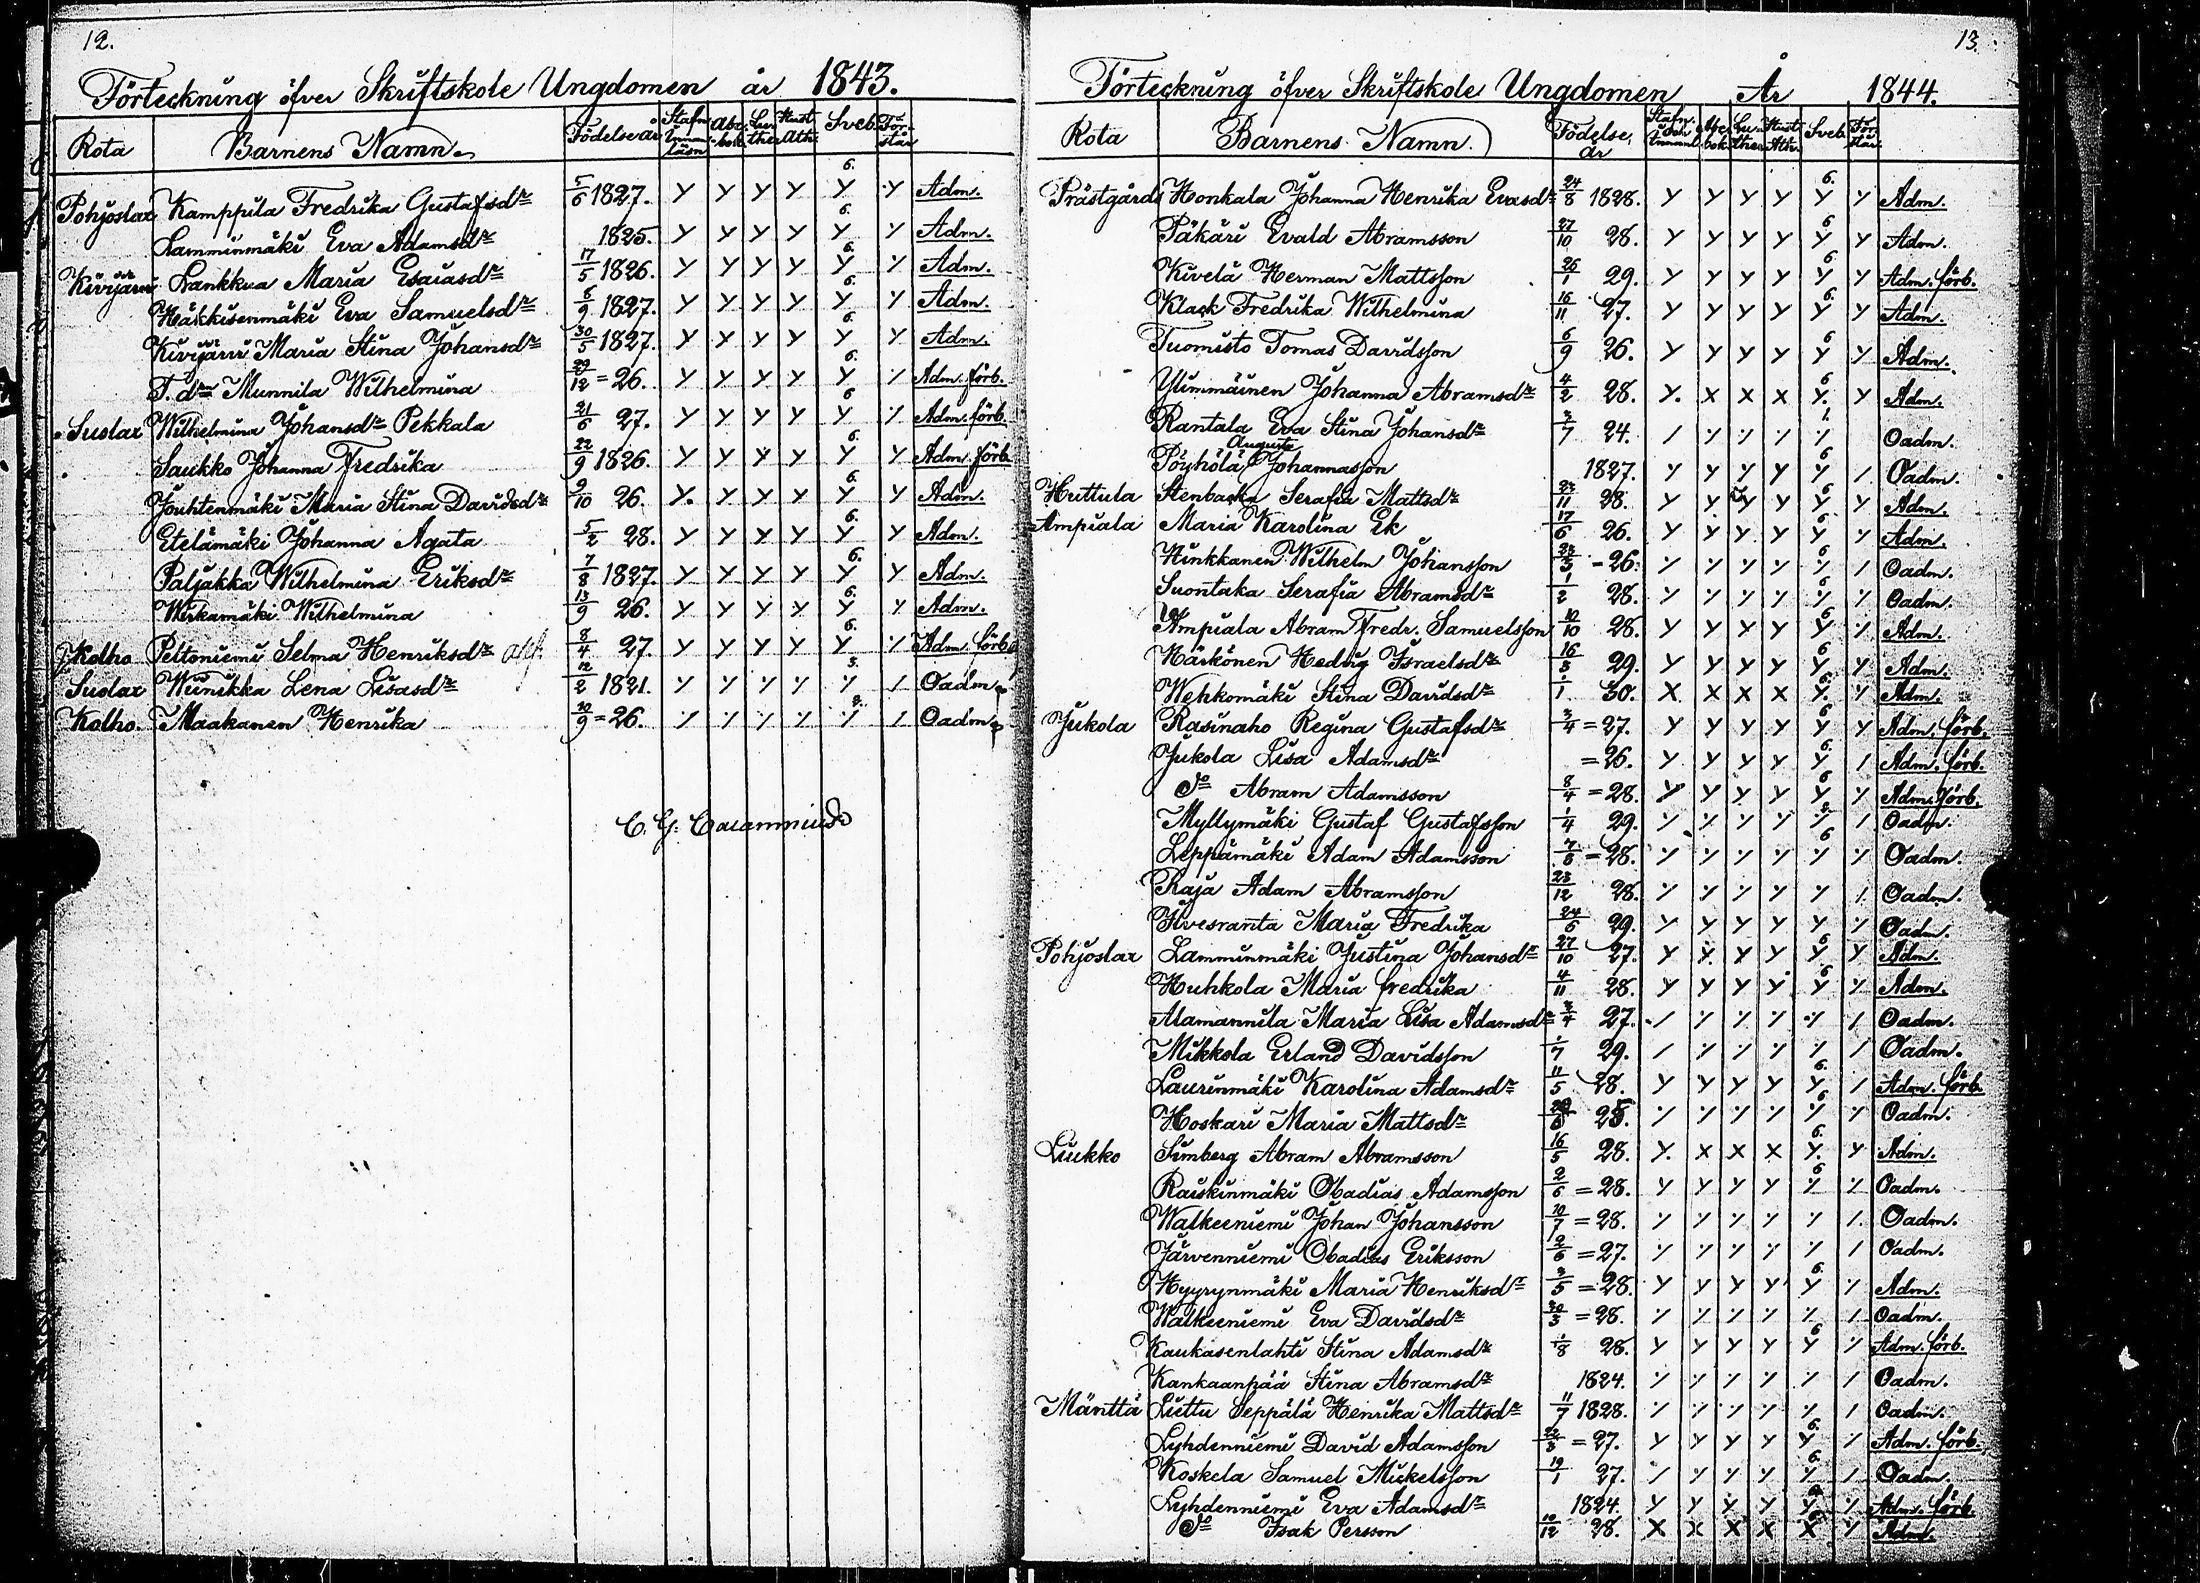 12.
Förteckning öfver Skriftskole Ungdomen år 1843.
Rota Barnens Namn. Födelseår Stafn. o. Innan läsn Abc bok Luther Hust. Ath. Sveb. Förstår
Pohjoslax Kamppila Fredrika Gustafsdr 5/6 1827. Y Y Y Y Y 6. Y Adm.
Lamminmäki Eva Adamsdr 1825. Y Y Y Y Y 6. Y Adm.
Kivijärvi Lankkua Maria Esaiasdr 17/5 1826. Y Y Y Y Y 6. Y Adm.
Häkkisenmäki Eva Samuelsdr 6/9 1827. Y Y Y Y Y 6. Y Adm.
Kivijärvi Maria Stina Johansdr 30/5 1827. Y Y Y Y Y 6. Y Adm.
T. dr Munnila Wilhelmina 29/12 = 26. Y Y Y Y Y 6. Y Adm. förb.
Suolax Wilhelmina Johansdr Pekkala 21/6 27. Y Y Y Y Y 6 Y Adm. förb.
Saukko Johanna Fredrika 22/9 1826. Y Y Y Y Y 6. Y Adm. förb.
Jouhtenmäki Maria Stina Davidsdr 9/10 26. Y. Y Y Y Y 6. Y Adm.
Etelämäki Johanna Agata 5/2 28. Y Y Y Y Y 6. Y Adm.
Paljakka Wilhelmina Eriksdr 7/8 1827 Y Y Y Y Y 6. Y Adm.
Wirkamäki Wilhelmina 13/9 26. Y Y Y Y Y 6. Y Adm.
Kolho Peltoniemi Selma Henriksdr 8/4 27. Y Y Y Y Y 6. Y Adm. förb.
Suolax Wiinikka Lena Lisasdr 12/2 1821. Oadm.
Kolho. Maakanen Henrika 20/9 = 26. Oadm.
13.
Förteckning öfver Skriftskole Ungdomen År 1844.
Rota Barnens Namn. Födelse år Stafn. och Innanl. Abc bok Luther Hust. Ath. Sveb. Förstår
Prästgårds Honkala Johanna Henrika Evasdr 24/8 1828. Y Y Y Y Y 6. Y Adm.
Päkäri Evald Abramsson 27/10 28. Y Y Y Y Y 6 Y Adm.
Kivelä Herman Mattsson 26/1 29. Y Y Y Y Y 6 Y Adm. förb.
Klack Fredrika Wilhelmina 16/11 27. Y Y Y Y Y 6. Y Adm.
Tuomisto Tomas Davidsson 6/9 26. Y Y Y Y Y 6 Y Adm.
Ylimmäinen Johanna Abramsdr 4/2 28. Y. X X X Y. 6 Y Adm.
Rantala Eva Stina Johansdr 3/7 24. Oadm.
Pöyhölä Augusta Johannasson 1827. Y Y Y Y Y 6 Oadm.
Huttula Stenbacka Serafia Mattsdr 22/11 28. Y Y Y Y Y 6 Y Adm.
Ampiala Maria Karolina Ek 17/6 26. Y Y Y Y Y 6 Y Adm.
Hinkkanen Wilhelm Johansson 23/3 - 26. Oadm.
Suontaka Serafia Abramsdr 1/2 28. Oadm.
Ampiala Abram Fredr. Samuelsson 10/10 28. Y Y Y Y Y 6 Adm.
Häikönen Hedvig Israelsdr 16/3 29. Y Y Y Y Y 6 Y Adm.
Wehkomäki Stina Davidsdr 1/1 30. X X X X Y. 6 Y Adm.
Jukola Rasinaho Regina Gustafsdr 3/4 = 27. Y Y Y Y Y 6 Y Adm. förb.
Jukola Lisa Adamsdr = 26. Y Y Y Y Y 6. Adm. förb.
do Abram Adamsson 8/4 = 28. Y Y Y Y Y 6 Adm. förb.
Myllymäki Gustaf Gustafsson 1/4 29. Oadm.
Leppämäki Adam Adamsson 7/8 = 28. Oadm.
Raja Adam Abramsson 23/12 28. Oadm.
Ilvesranta Maria Fredrika 24/6 29. Y Y Y Y Y Y Oadm.
Pohjoslax Lamminmäki Justina Johansdr 27/10 27. Y Y Y Y Y 6 Y Adm.
Huhkola Maria Fredrika 4/11 28. Y Y Y Y Y 6 Adm.
Alamannila Maria Lisa Adamsdr 3/4 27. Oadm.
Mikkola Erland Davidsson 1/7 29. Oadm.
Laurinmäki Karolina Adamsdr 11/5 28. Y Y Y Y Y 6. Adm. förb.
Hoskari Maria Mattsdr 25. Oadm.
Liukko Simberg Abram Abramsson 16/5 28. Y. X X X Y. 6. Y Adm.
Raiskinmäki Obadias Adamsson 2/6 = 28. Y Y Y Y 6 Oadm.
Walkeeniemi Johan Johansson 10/7 = 28. Oadm.
Järvenniemi Obadias Eriksson 2/6 = 27. Oadm.
Hyyrynmäki Maria Henriksdr 3/5 = 28. Y Y Y Y Y 6. Adm.
Walkeeniemi Eva Davidsdr 20/3 = 28. Oadm.
Kaukasenlahti Stina Adamsdr 1/8 28. Y Y Y Y Y 6 Adm. förb.
Kankaanpää Stina Abramsdr 1824. Oadm.
Mänttä Liettu Seppälä Henrika Mattsdr 11/7 1828. Oadm.
Lyhdenniemi David Adamsson 22/3 = 27. Y Y Y Y Y 6. Adm. förb.
Koskela Samuel Mickelsson 19/1 27. Oadm.
Lyhdenniemi Eva Adamsdr 1824. Y Y Y Y Y Adm. förb.
do Isak Persson 10/12 28. X X X X X Y Adm.